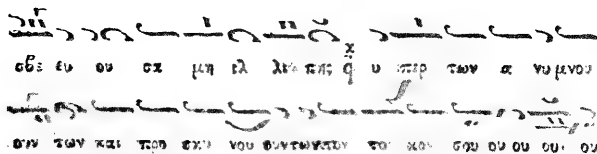 σβε ευ ου σα μη ελ λει πης q υ περ των α νυ μνου
ουν των και προ σκυ νου ουντωνπαν το κον σου ου ου ου ου